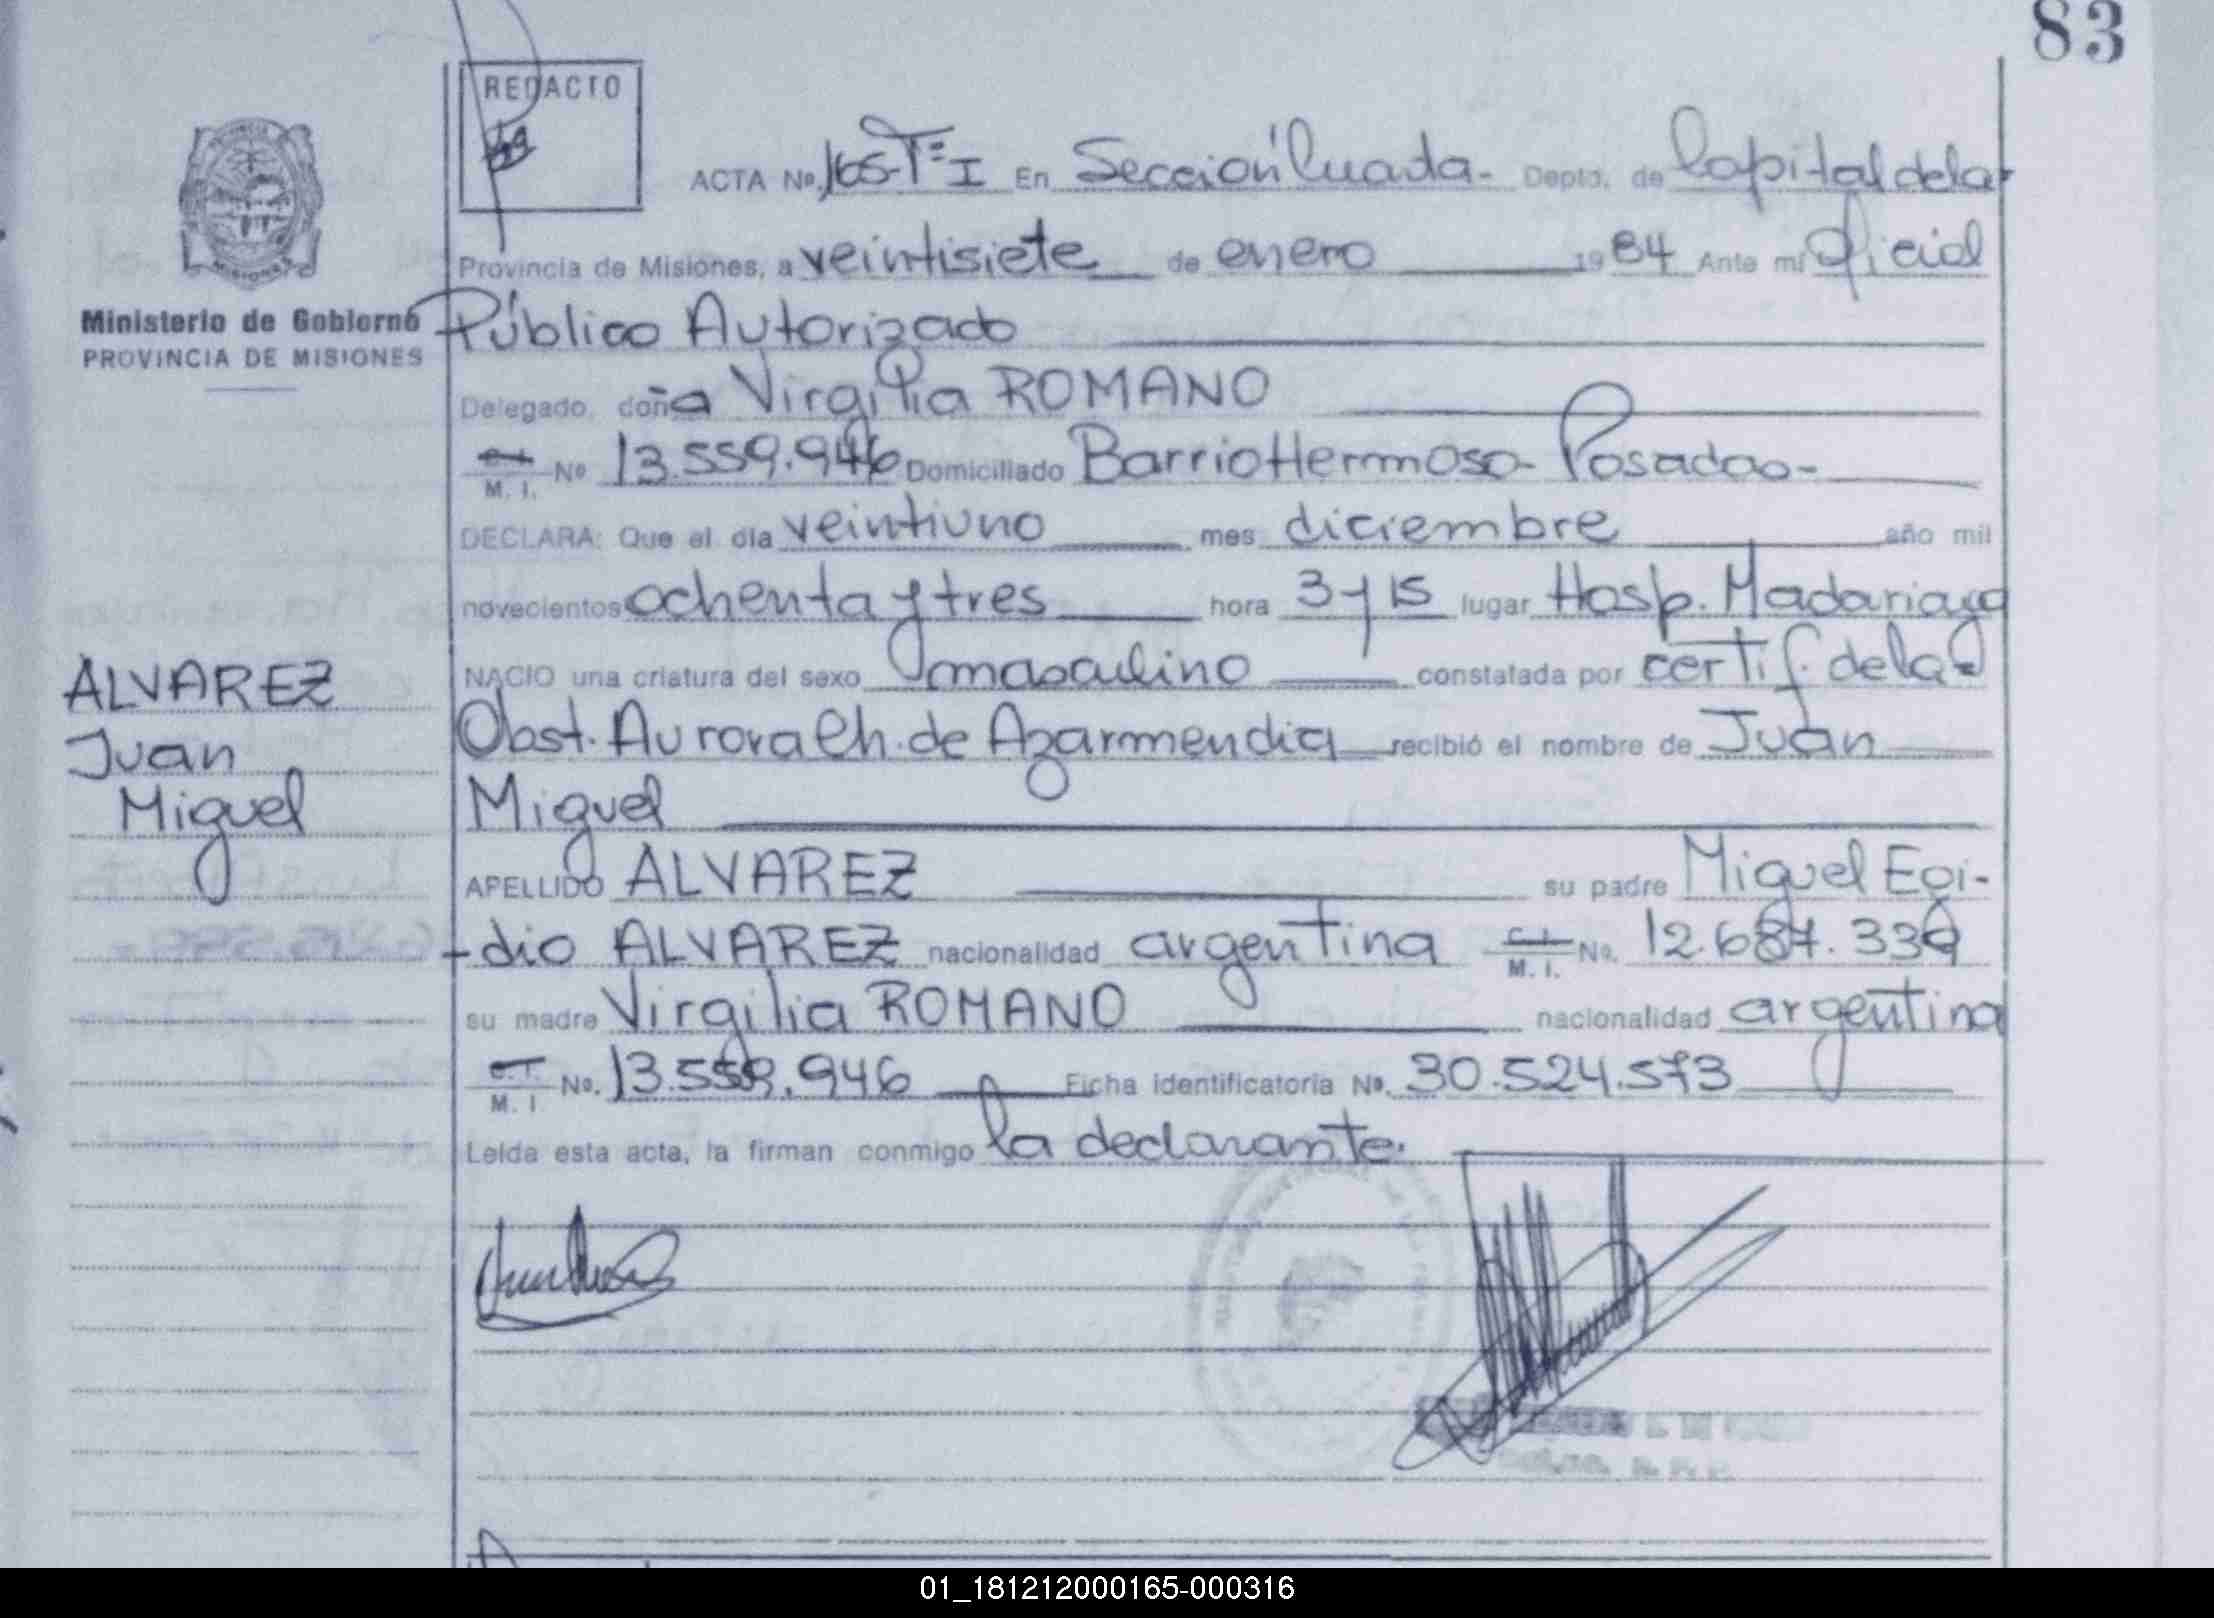 83
REDACTO
ACTA No. 165-Tº I En Sección Cuarta- Depto. de Capital de la
Provincia de Misiones, a veintisiete de enero 1984 Ante mí Oficial
Ministerio de Gobierno
PROVINCIA DE MISIONES
Público Autorizado
Delegado, doña Virgilia ROMANO
C.I. M. I. Nº 13.559.946 Domiciliado Barrio Hermoso- Posadas-
DECLARA: Que el día veintiuno mes diciembre año mil
novecientos ochenta y tres hora 3 y 15 lugar Hosp. Madariaga
NACIO una criatura del sexo masculino constatada por certif. de la
Obst. Aurora Ch. de Azarmendia recibió el nombre de Juan
Miguel
ALVAREZ
Juan
Miguel
APELLIDO ALVAREZ su padre Miguel Egi-
-dio ALVAREZ nacionalidad argentina C.I. M. I. No. 12.687.339
su madre Virgilia ROMANO nacionalidad argentina
C.I. M. I. No. 13.559.946 Ficha identificatoria No. 30.524.573
Leída esta acta, la firman conmigo la declarante.
01_181212000165-000316